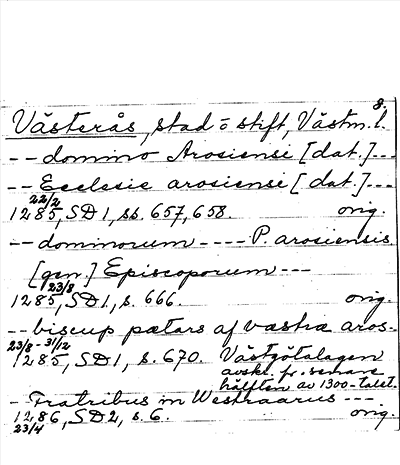 8.
Västerås, stad o stift, Västm. l.
-- domino Arosiensi [dat.]---
-- Ecclesie arosiensi [dat.]---
22/2
1285, SD1, ss. 657, 658. orig.
-- dominorum ---- P. arosiensis
[gen.] Episcoporum ---
23/8
1285, SD1, s. 666. orig.
-- biscup pætars af væstra aros-
23/8 - 31/12
1285, SD1, s. 670. Västgötalagen
avskr. fr. senare
hälften av 1300-talet.
- Fratribus in Westraarus ---
1286, SD2, s. 6. orig.
23/4